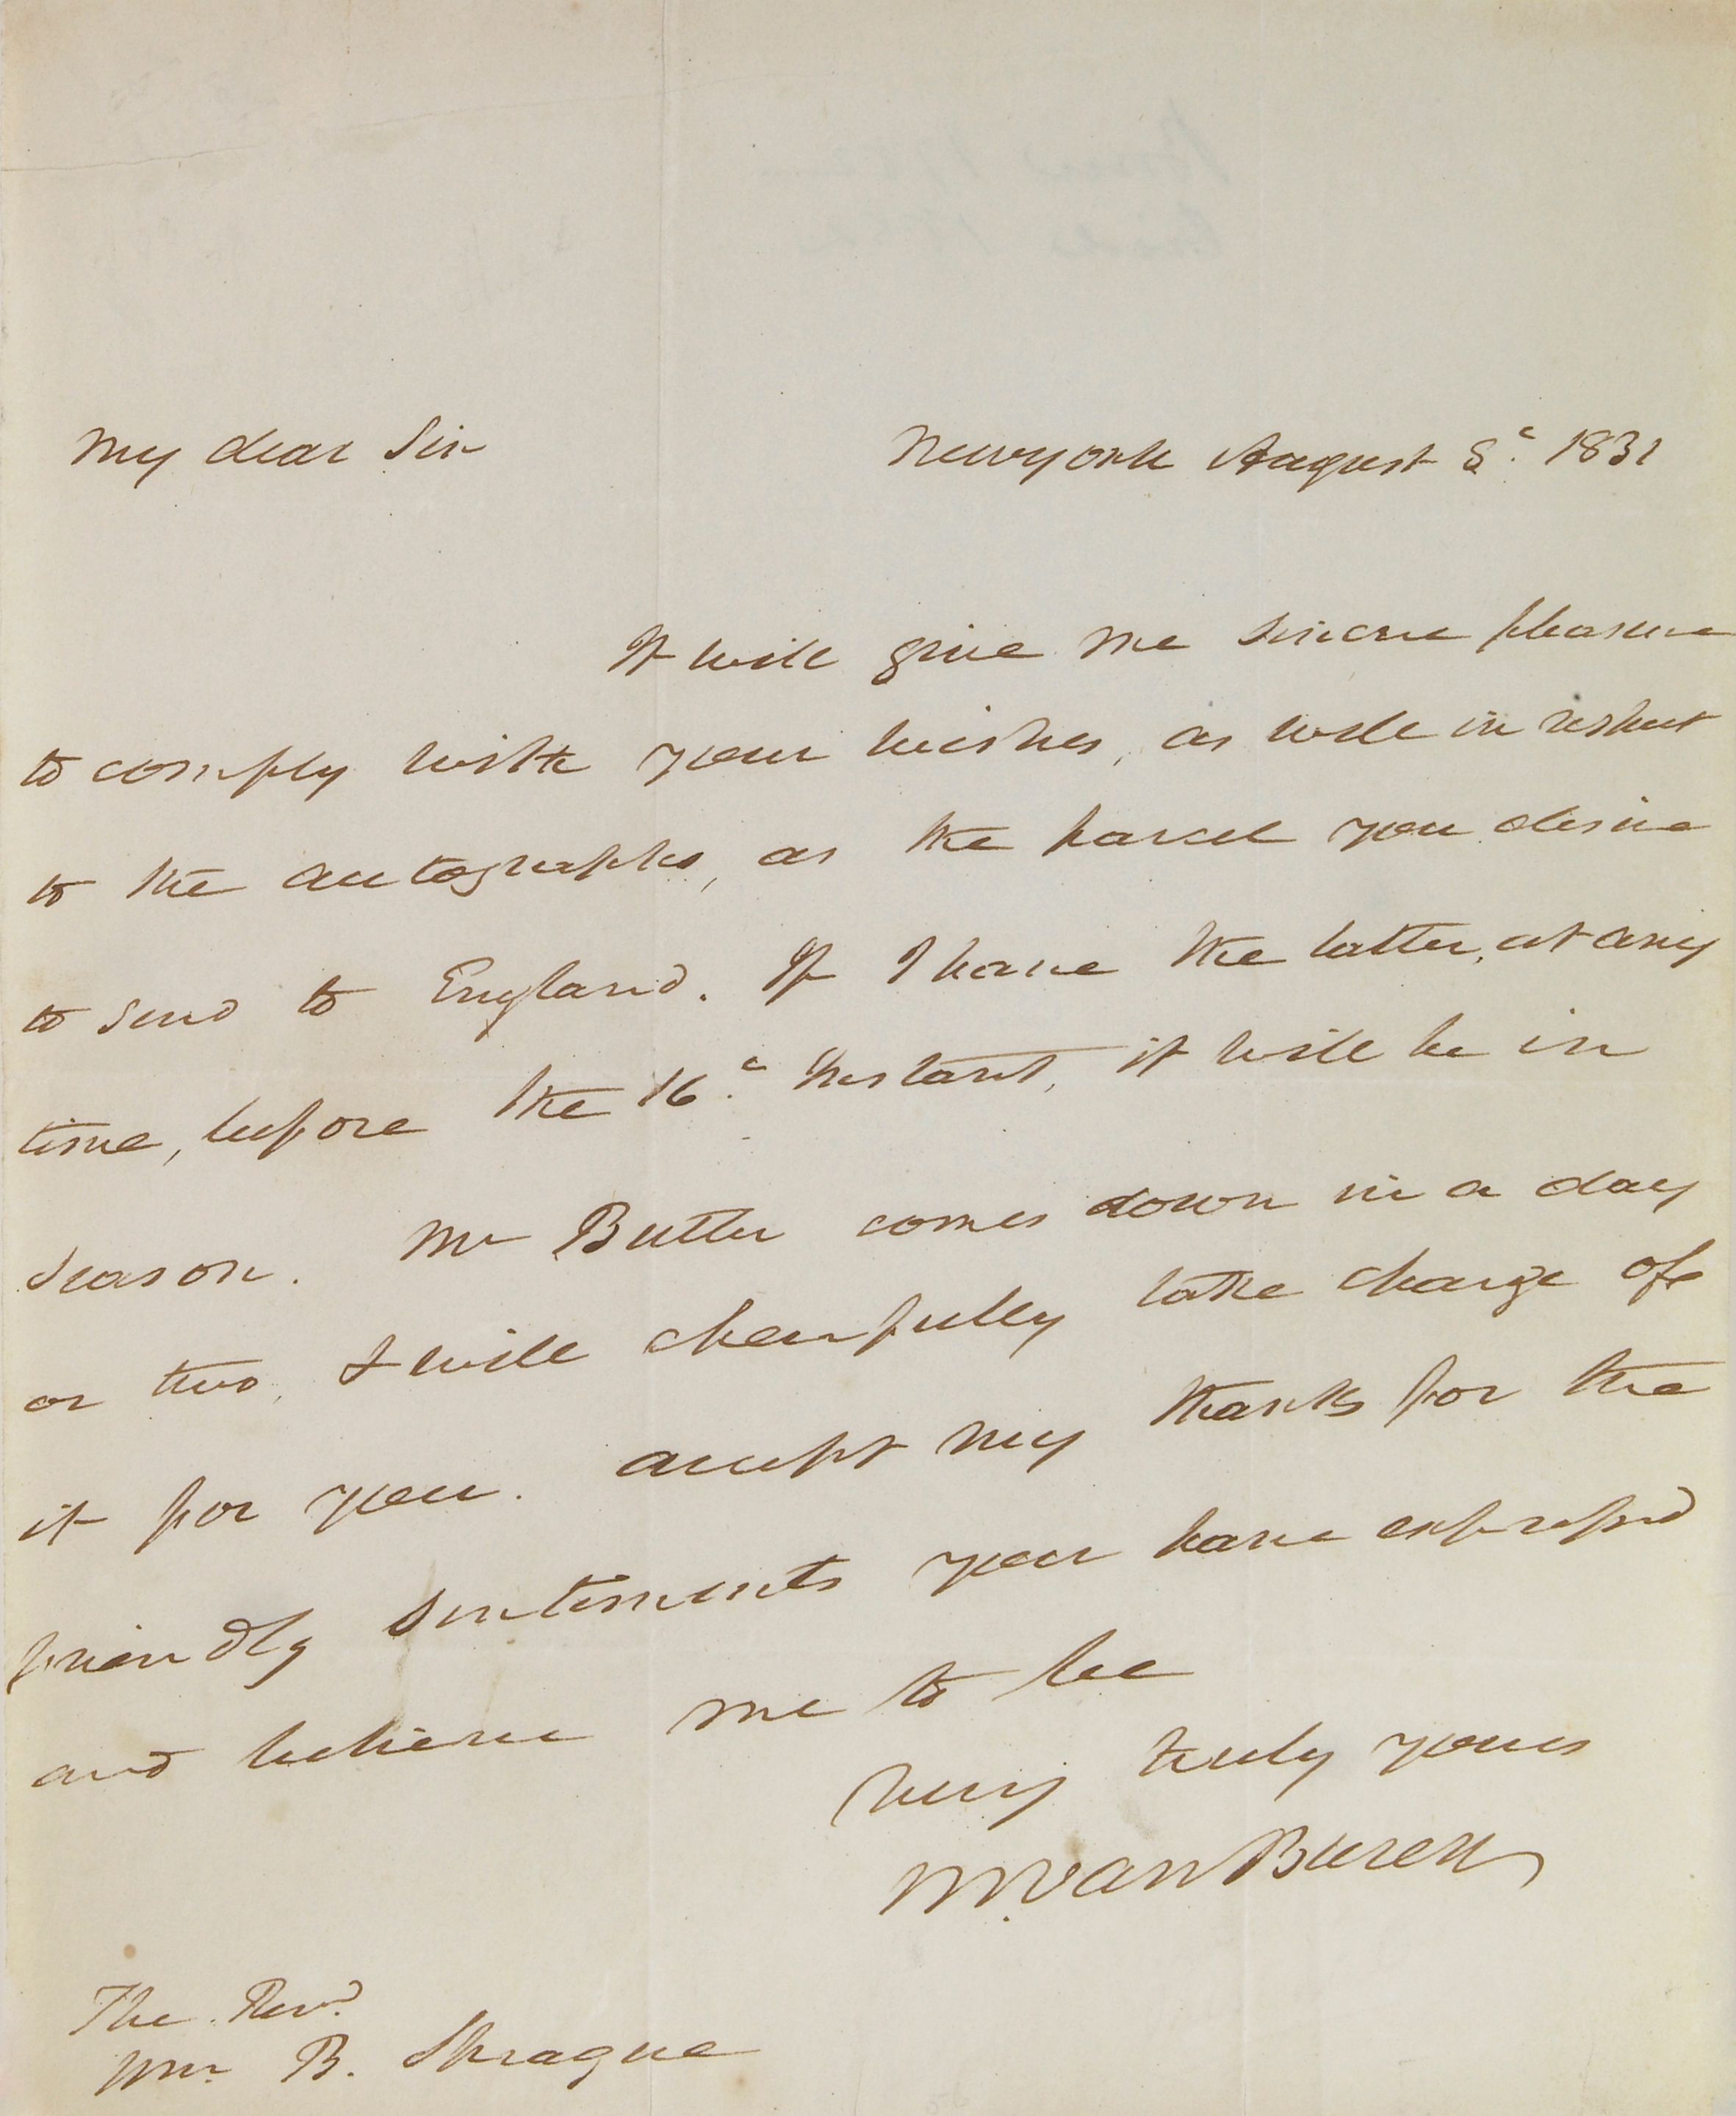 My dear Sir
Newyork August 8. 1831
It will give me sincere pleasure
to comply with your wishes, as well in respect
to the autographs, as the parcel you desire
to send to England. If I have the latter, at any
time, before the 16. Instant, it will be in
season. Mr Butler comes down in a day
or two, & will cheerfully take charge of
it for you. accept my thanks for the
friendly sentiments you have expressed
and believe me to be
very truly yours
M. Van Buren
The Revd.
Wm. B. Sprague